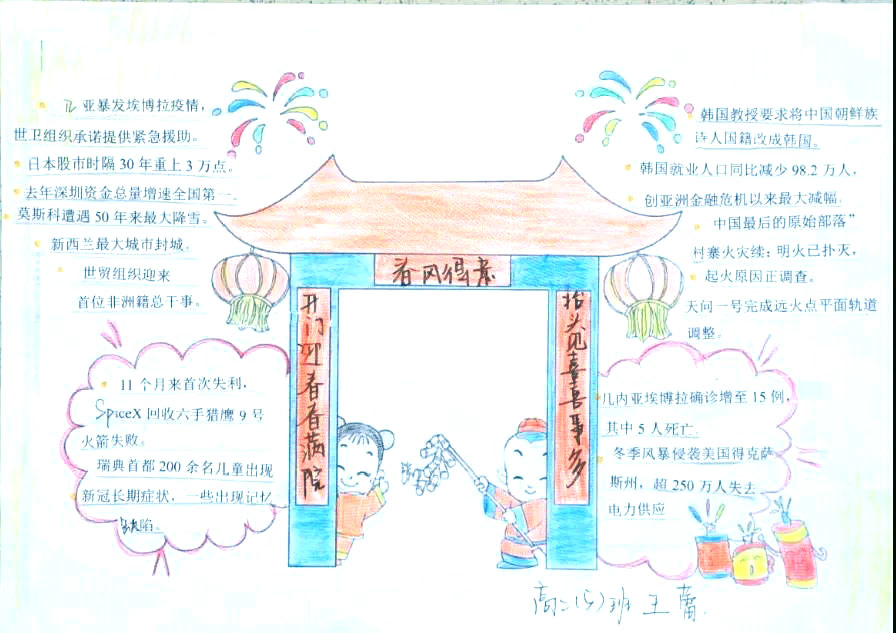 亚暴发埃博拉疫情，
世卫组织承诺提供紧急援助。
日本股市时隔 30 年重上 3 万点。
去年深圳资金总量增速全国第一
莫斯科遭遇 50 年来最大降雪。
新西兰最大城市封城。
世贸组织迎来
首位非洲籍总干事。
11 个月来首次失利，
SpiceX 回收六手猎鹰 9 号
火箭失败。
瑞典首都 200 余名儿童出现
新冠长期症状，一些出现记忆
缺陷。
春风得意
开门迎春春满院
抬头见喜喜事多
韩国教授要求将中国朝鲜族
诗人国籍改成韩国。
韩国就业人口同比减少 98.2 万人，
创亚洲金融危机以来最大减幅.
中国最后的原始部落”
村寨火灾续：明火已扑灭，
起火原因正调查。
天问一号完成远火点平面轨道
调整。
几内亚埃博拉确诊增至 15 例，
其中 5 人死亡.
冬季风暴侵袭美国得克萨
斯州，超 250 万人失去
电力供应
高二(5)班 王